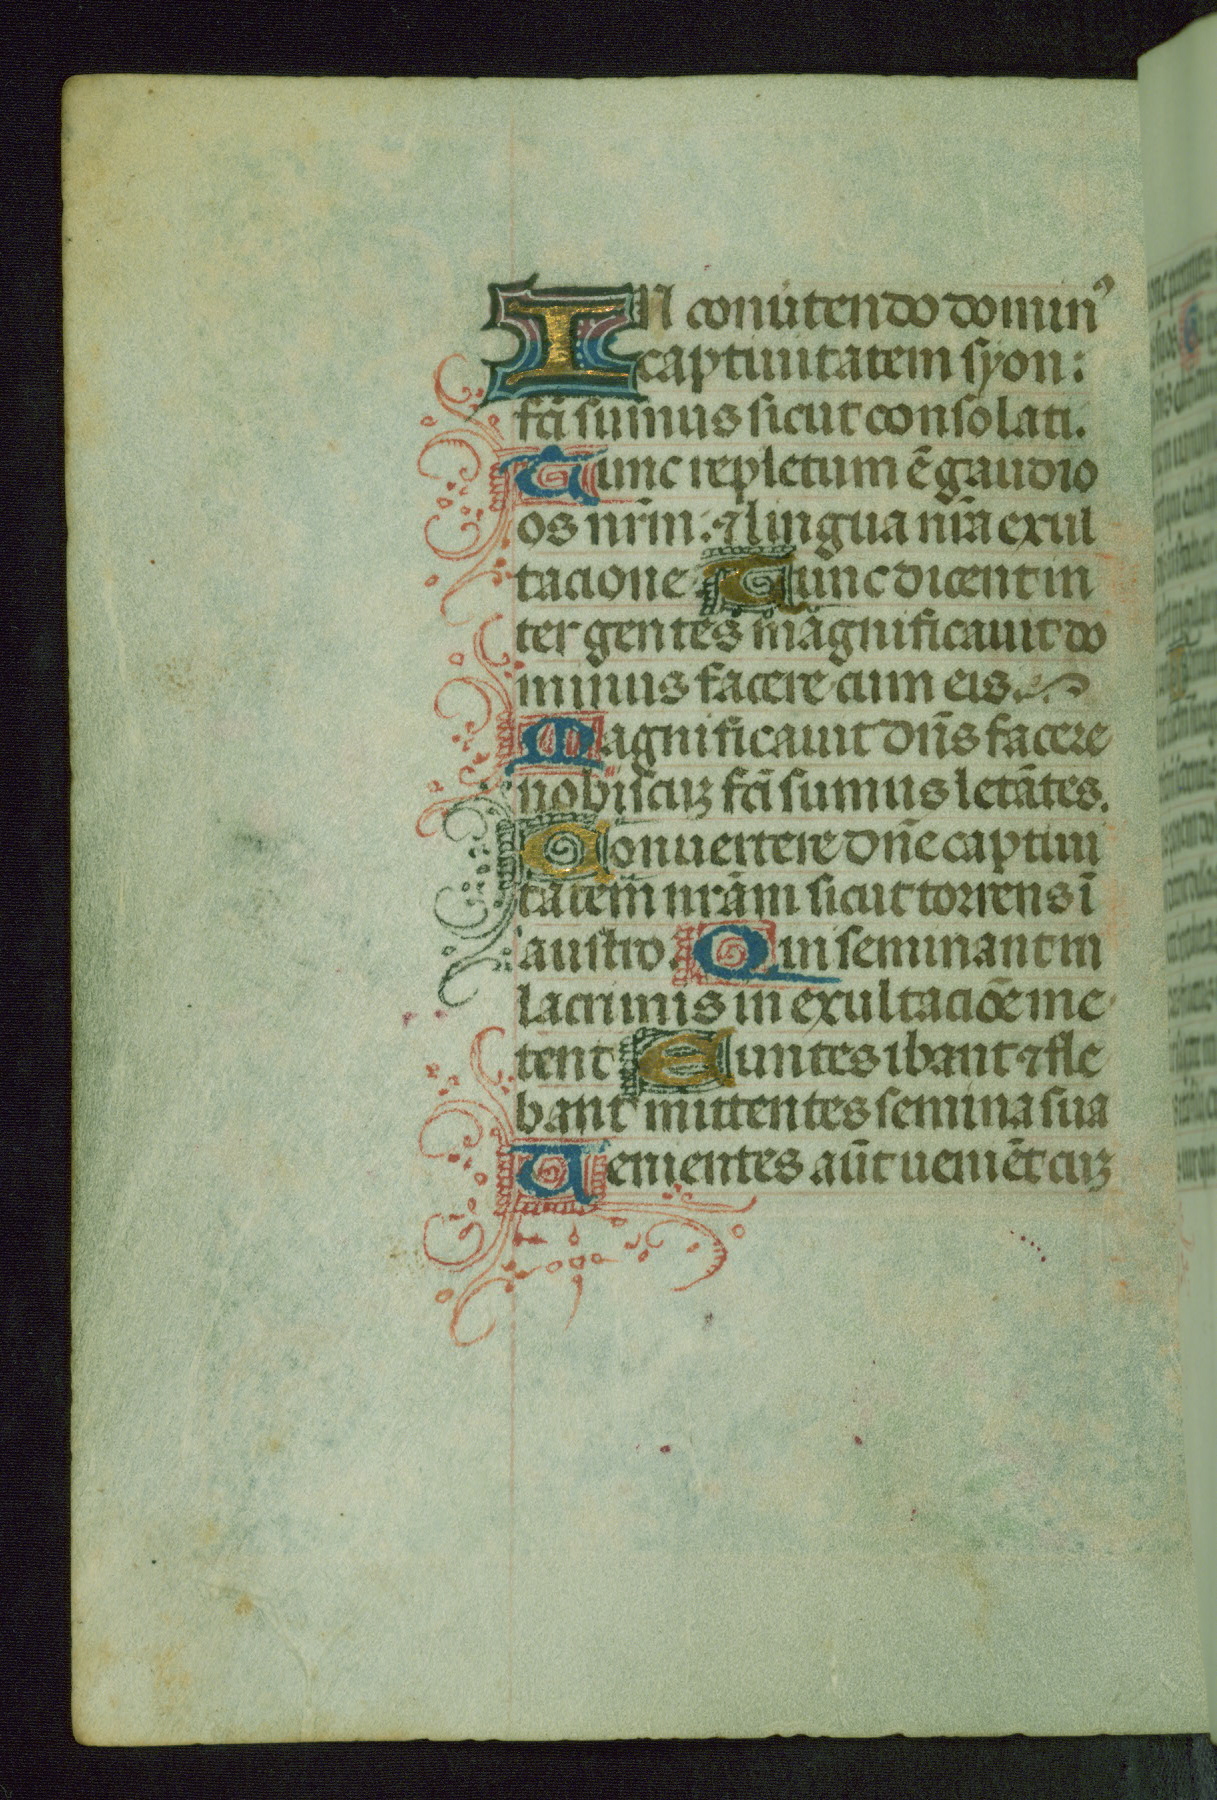 IN conũtendo dominꝰ
captiuitatem syon:
fc̃i sumus sicut consolati.
Tunc repletum ẽ gaudio
os nr̃m: ⁊ lingua nr̃a exul
tacione Tunc dicent in
ter gentes magnificauit do
minus facere cum eis.
Magnificauit dñs facere
nobiscuꝫ fc̃i sumus letãtes.
Conuertere dñe captiui
tatem nrãm sicut torrens ĩ
austro. Qui seminant in
lacrimis in exultaciõe me
tent Euntes ibant ⁊ fle
bant mittentes semina sua
Uenientes aũt ueniẽt cuꝫ